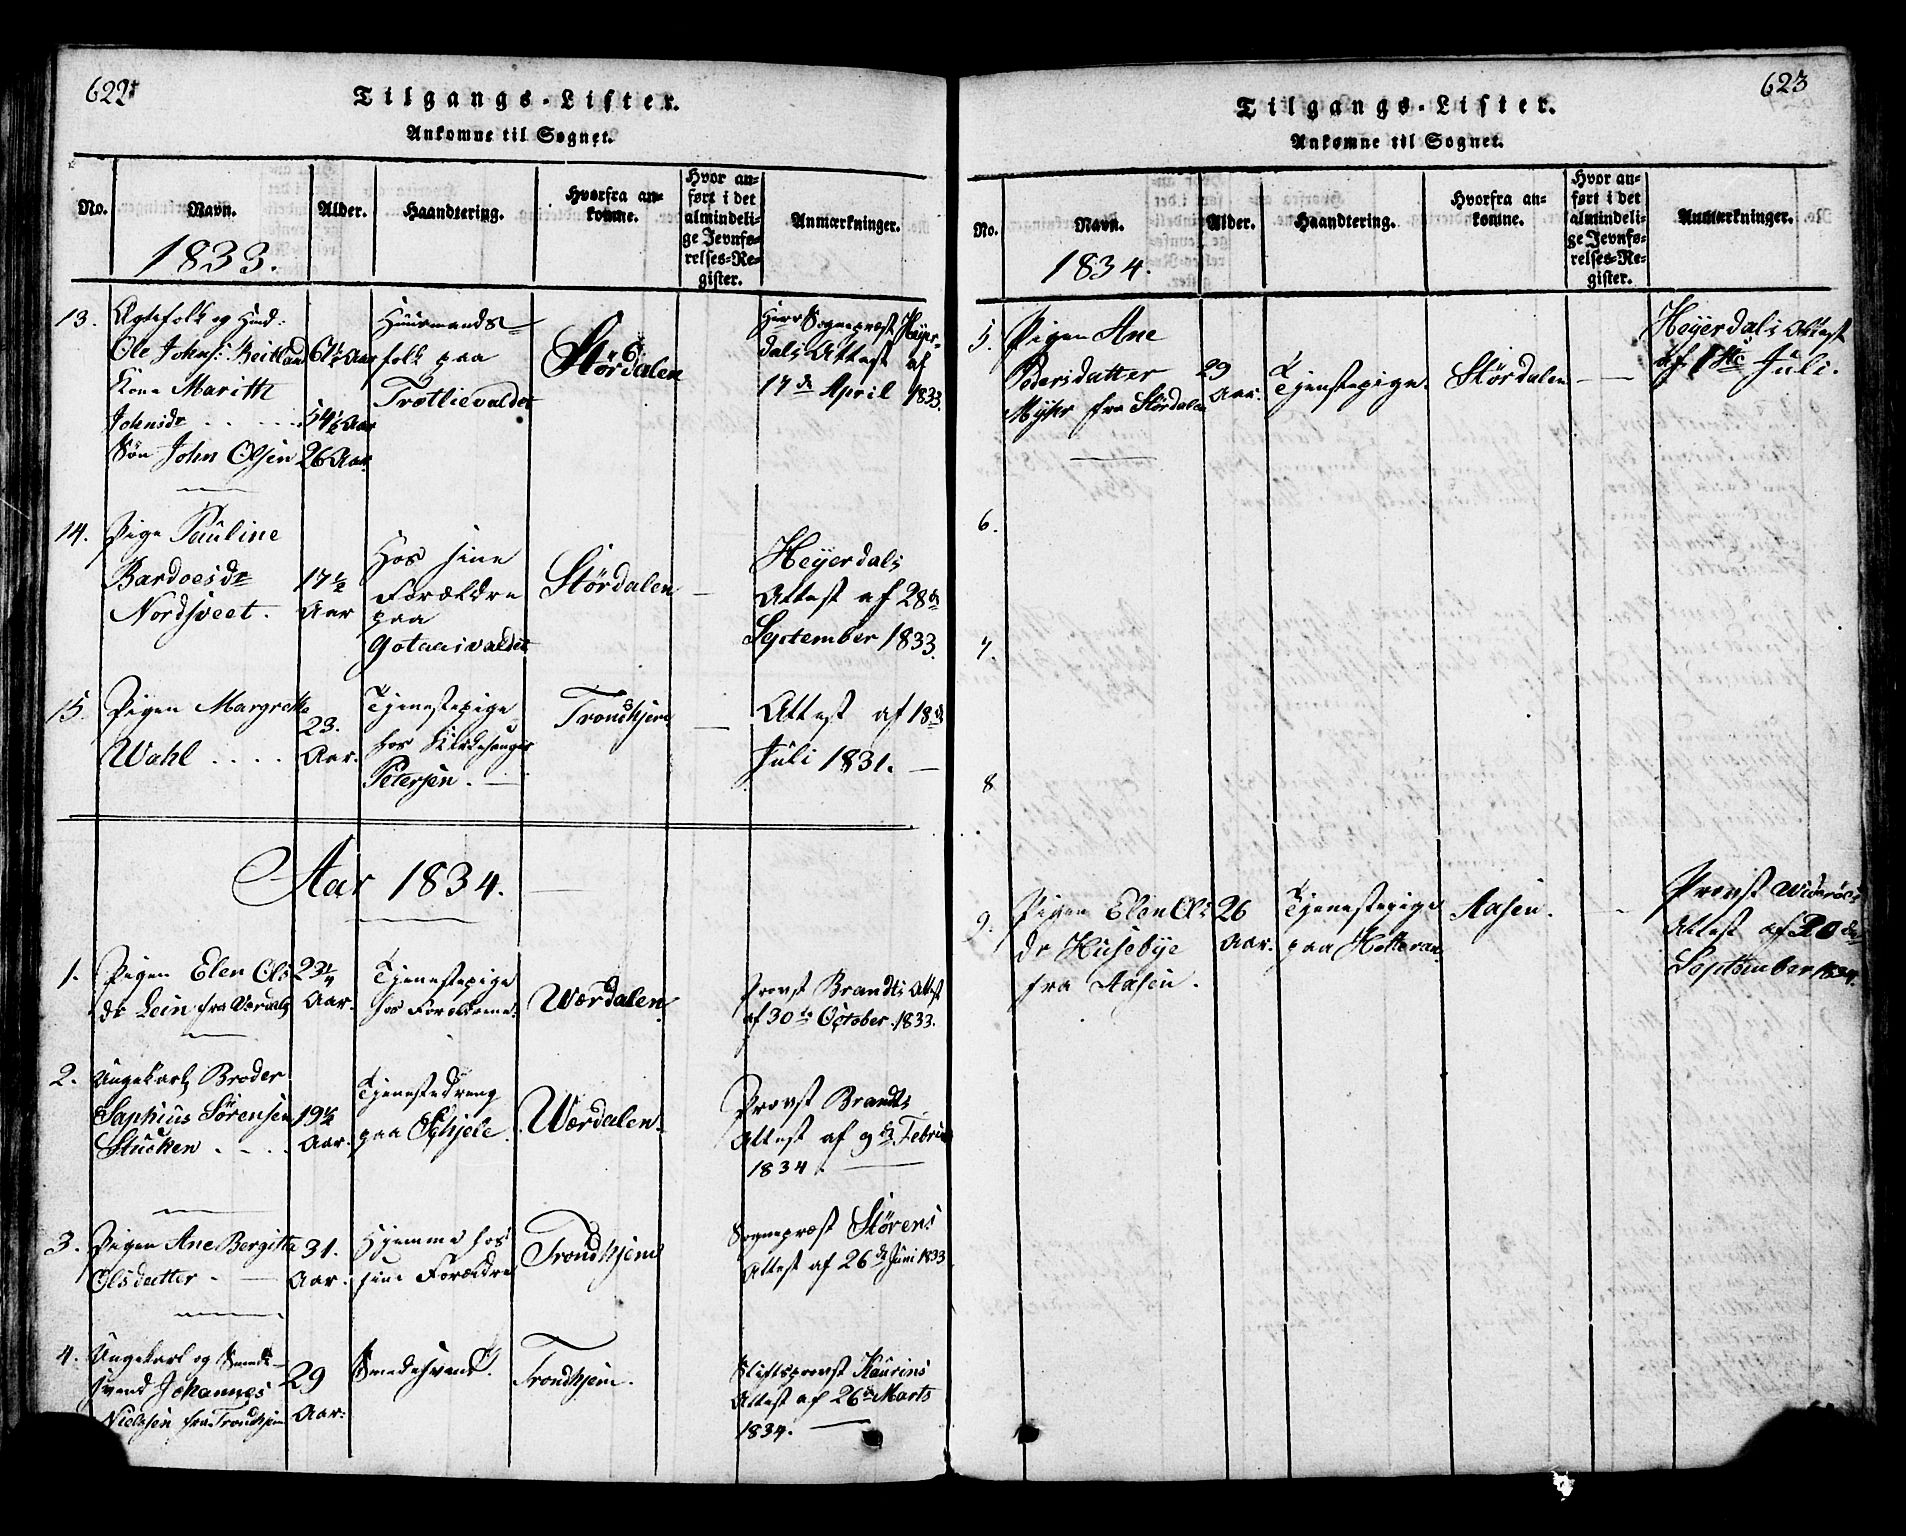 622
Tilgangs-Lister.
Ankomne til Sognet.
No.
Navn.
1833.
Alder.
Haandtering.
Hvorfra an-
komne.
Hvor an-
ført i det
almindeli-
ge Jevnfø-
relses-Re-
gister.
Anmærkninger.
13.
Ægtefolk og Huud:
Ole Johns: Beitland
Kone Maritt
Johnsdr . . .
Søn John Olsen
61½ Aar
54½ Aar
26 Aar
Huusmands-
folk paa
Trætlievaldet
Stördalen
Herr Sognepræst Heyer-
dals Attest af
17de April 1833.
14.
Pige Pauline
Bardoesdr
Nordsveet.
17½
Aar
Hos sine
Forældre
paa
Gotaasvaldet
Stördalen
Heyerdals
Attest af 28de
September 1833.
15.
Pigen Margrethe
Wahl . . . .
23.
Aar.
Tjenestepige
hos Kirkesanger
Petersen.
Trondhjem
Attest af 18de
Juli 1831.
Aar 1834.
1.
Pigen Elen Ols
dr Lein fra Værdalen
23¼
Aar.
Tjenestepige
hos Forældrene.
Værdalen.
Provst Brandts Attest
af 30te October 1833.
2.
Ungekarl Broder
Saphius Sörensen
Stücken . - . .
19½
Aar.
Tjenestedreng
paa Schjele.
Værdalen.
Provst Brandts
Attest af 9de Februar
1834.
3.
Pigen Ane Bergitta
Olsdatter.
31.
Aar.
Hjemme hos
sine Forældre
Trondhjem
Sognepræst Störens
Attest af 26de Juni 1833
4.
Ungekarl og Smede-
svend Johannes
Nielssen fra Trondhjem
29
Aar.
Smedesvend.
Trondhjem.
Stiftsprovst Kaurins
Attest af 26de Marts
1834.
623
Tilgangs-Lister.
Ankomne til Sognet.
No.
Navn.
1834.
Alder.
Haandtering.
Hvorfra an-
komne.
Hvor an-
ført i det
almindeli-
ge Jevnfø-
relses-Re-
gister.
Anmærkninger.
5.
Pigen Ane
Pedersdatter
Myhr fra Stördalen
29
Aar.
Tjenestepige
Stördalen
Heyerdals Attest
af 1ste Juli.
6.
7.
8
9.
Pigen Elen Ols
dr Husebye
fra Aasen.
26
Aar.
Tjenestepige
paa Hotteran
Aasen.
Provst Widerøes
Attest af 20de
September 1834.